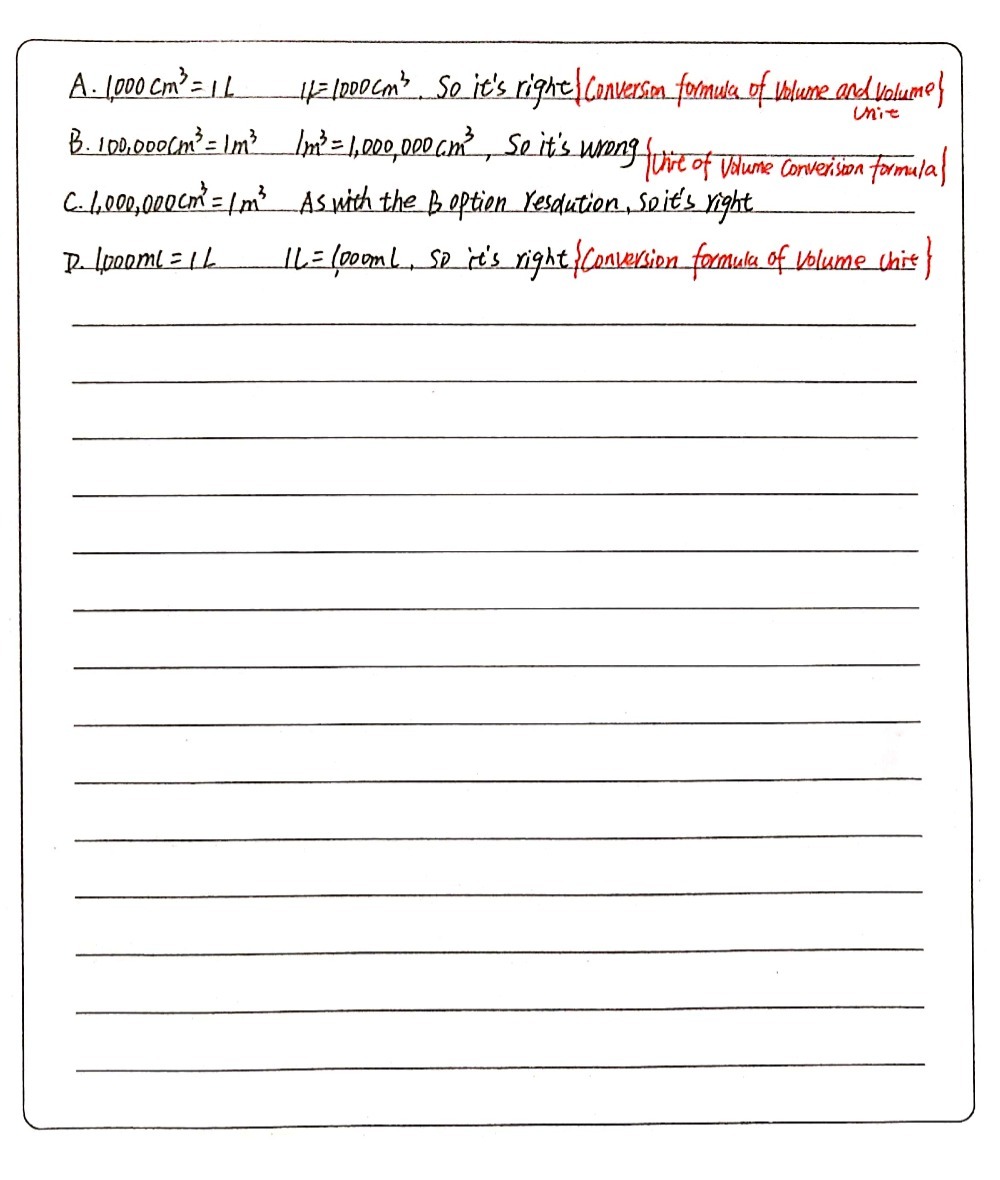 A. 1,000 cm³ = 1 L 1L = 1000 cm³. So it's right {Conversion formula of Volume and volume}
Unit
B. 100,000 cm³ = 1 m³ 1m³ = 1,000,000 cm³, So it's wrong {Unit of Volume Converision formula}
C. 1,000,000 cm³ = 1 m³ As with the B option resolution, so it's right
D. 1,000ml = 1 L 1L = 1,000ml, so it's right {Conversion formula of Volume Unit}